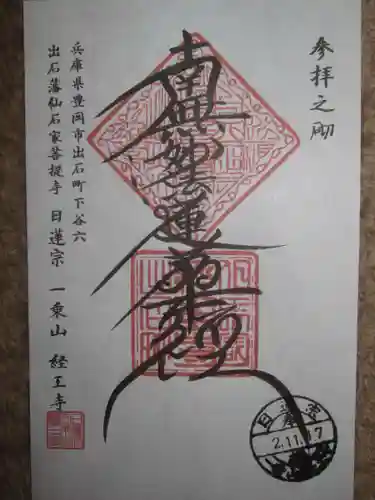 参拝之砌
南無妙法蓮華経
兵庫県豊岡市出石町下谷六
出石藩仙石家菩提寺 日蓮宗 一乗山 経王寺
2.11.17